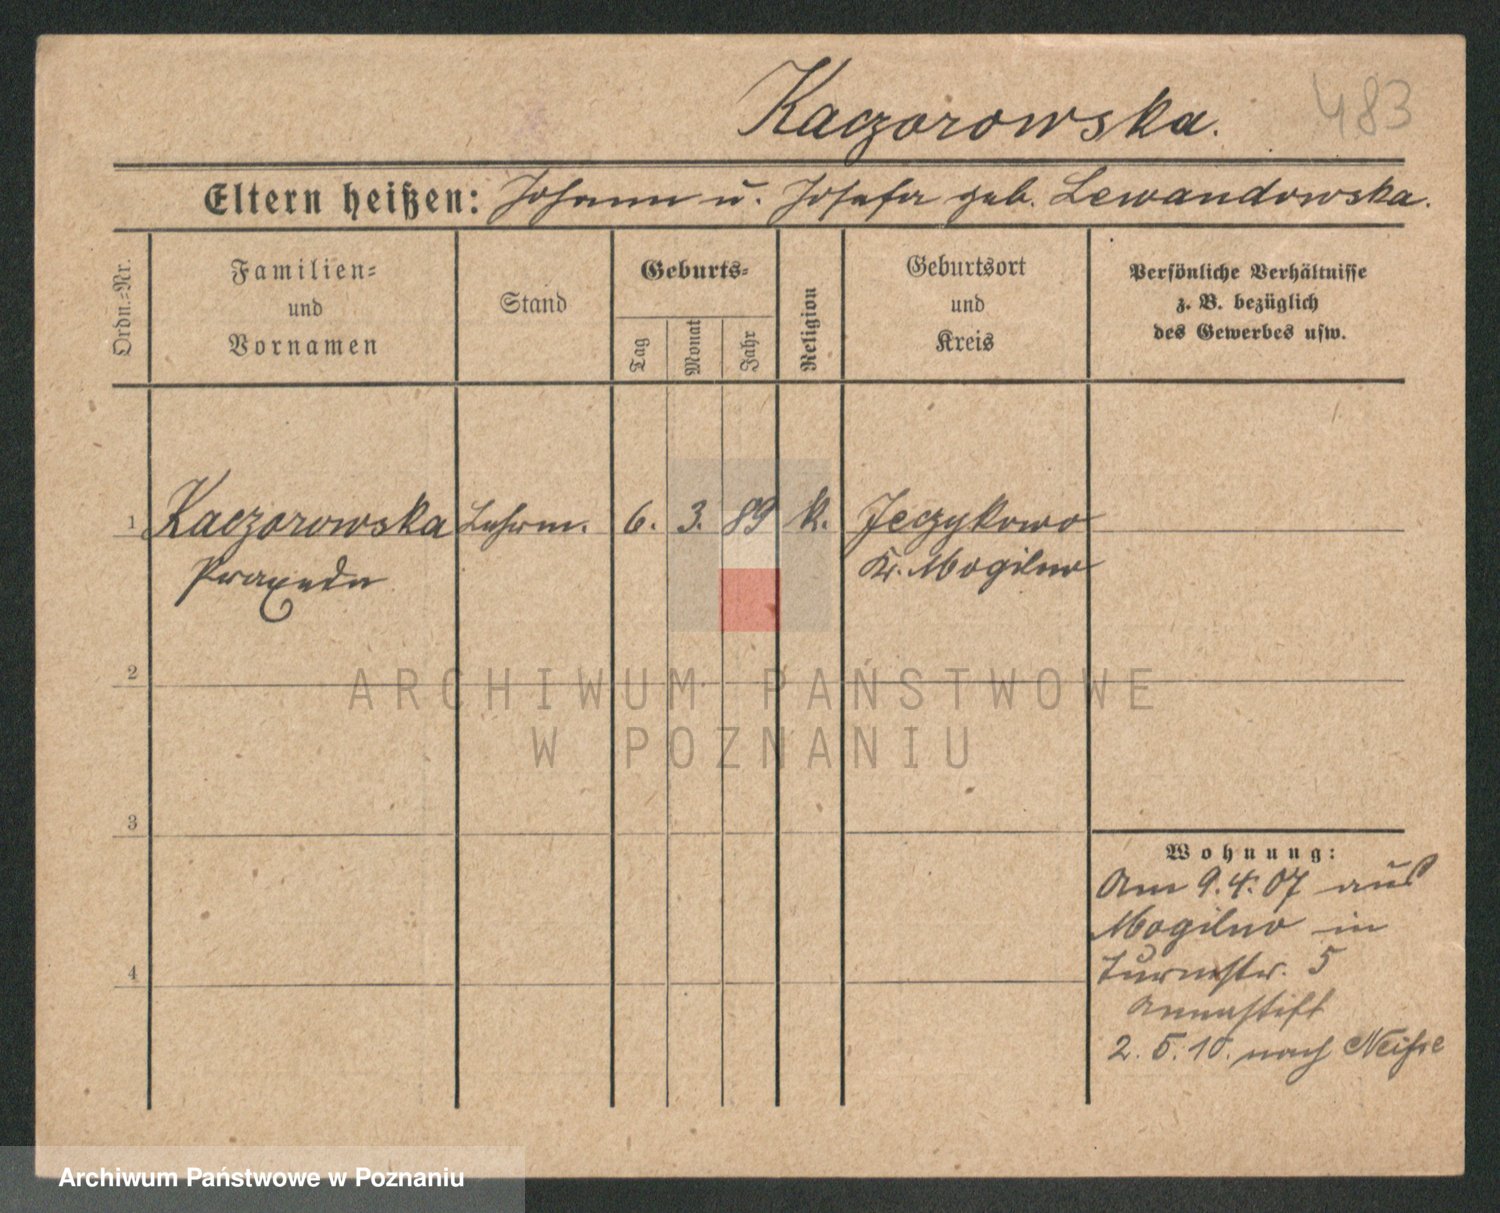 Kaczorowska.
483
Eltern heißen: Johann u. Josefa geb. Lewandowska.
Ordn.-Nr.
Familien- und Vornamen
Stand
Geburts-
Tag
Monat
Jahr
Religion
Geburtsort und Kreis
Persönliche Verhältnisse
z. B. bezüglich
des Gewerbes usw.
1 Kaczorowska 6. 3. 89 k. Jeczykowo
Praxeda Kr. Mogilno
2
3
4
Wohnung:
Am 9.4.07 aus
Mogilno in
Turmstr. 5
Annastift
2. 5. 10. nach Neisse
ARCHIWUM PAŃSTWOWE
W POZNANIU
Archiwum Państwowe w Poznaniu